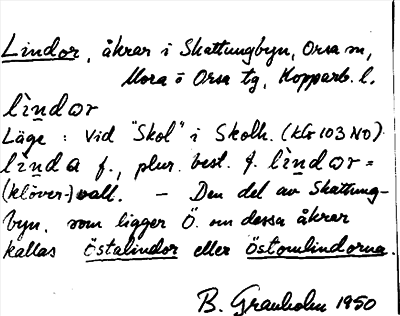 Lindor, åkrar i Skattungbyn, Orsa sn,
Mora o Orsa tg, Kopparb. l.
lìndor
Läge: Vid "Skol" i Skolh. (kls 103 NO).
lìnda f., plur. best. f. lìndor =
(klöver-)vall. – Den del av Skattung-
byn, som ligger Ö. om dessa åkrar
kallas Östalindor eller Östomlindorna.
B. Granholm 1950